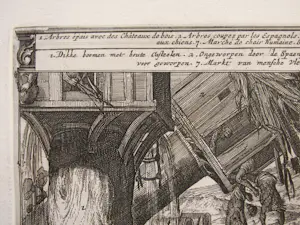 1. Arbres épais avec des Châteaux de bois. 2. Arbres coupes par les Espagnols.
aux chiens. 7. Marche de chair Humaine.
1. Dikke boomen met houte 2. Ongeworpen door de Spaan
voor geworpen. 7. Markt van mensche Vle